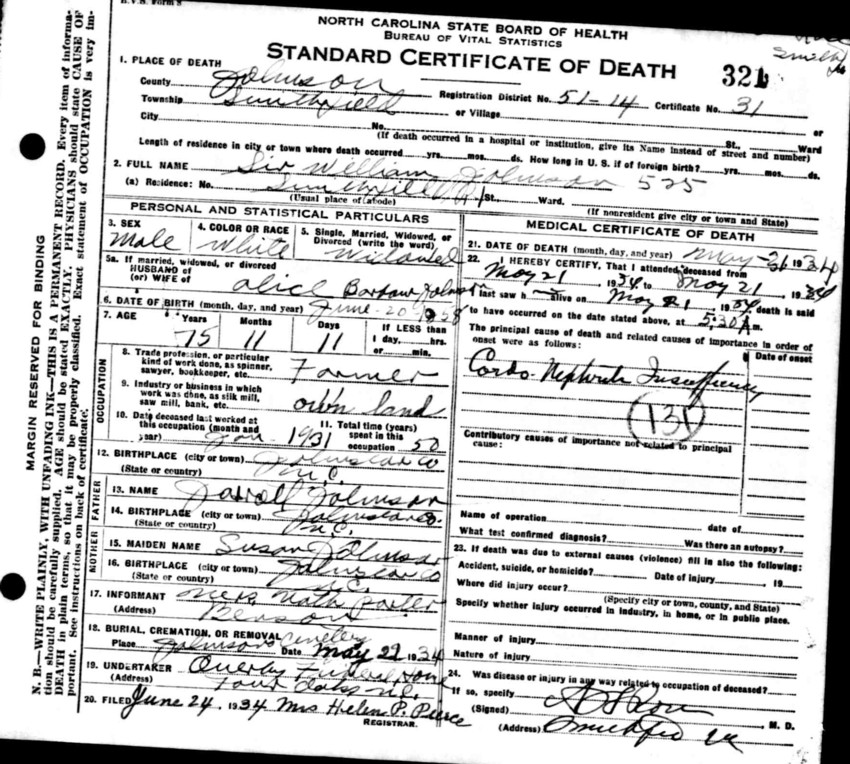 B.V.S. Form 8
NORTH CAROLINA STATE BOARD OF HEALTH
BUREAU OF VITAL STATISTICS
STANDARD CERTIFICATE OF DEATH
321
1. PLACE OF DEATH
County Johnson
Registration District No. 51-14 Certificate No. 31
Township Smithfield or Village or
City No. St., Ward
(If death occurred in a hospital or institution, give its Name instead of street and number)
Length of residence in city or town where death occurred yrs. mos. ds. How long in U. S. if of foreign birth? yrs. mos. ds.
2. FULL NAME Sir William Johnson 525
(a) Residence: No. Smithfield St., Ward.
(Usual place of abode) (If nonresident give city or town and State)
PERSONAL AND STATISTICAL PARTICULARS
3. SEX 4. COLOR OR RACE 5. Single, Married, Widowed, or Divorced (write the word)
Male White Widowed
5a. If married, widowed, or divorced
HUSBAND of
(or) WIFE of Alice Johnson
6. DATE OF BIRTH (month, day, and year) June 20
7. AGE Years Months Days If LESS than
75 11 11 1 day, hrs.
or min.
OCCUPATION
8. Trade profession, or particular
kind of work done, as spinner,
sawyer, bookkeeper, etc. Farmer
9. Industry or business in which
work was done, as silk mill,
saw mill, bank, etc. own land
10. Date deceased last worked at
this occupation (month and
year) Jan 1931
11. Total time (years)
spent in this
occupation 50
12. BIRTHPLACE (city or town) Johnston Co
(State or country) N.C.
FATHER
13. NAME Johnson
14. BIRTHPLACE (city or town) Johnston Co.
(State or country) N.C.
MOTHER
15. MAIDEN NAME Susan Johnson
16. BIRTHPLACE (city or town) Johnston Co
(State or country) N.C.
17. INFORMANT Mrs Porter
(Address) Benson
18. BURIAL, CREMATION, OR REMOVAL Cemetery
Place Johnson Date May 22 1934
19. UNDERTAKER Funeral Home
(Address) Four Oaks N.C.
20. FILED June 24, 1934 Mrs Helen P. Pierce
REGISTRAR.
MEDICAL CERTIFICATE OF DEATH
21. DATE OF DEATH (month, day, and year) May 21 1934
22. I HEREBY CERTIFY, That I attended deceased from
May 21, 1934 to May 21, 1934
I last saw h alive on May 21, 1934 death is said
to have occurred on the date stated above, at 5:30 A m.
The principal cause of death and related causes of importance in order of
onset were as follows: Date of onset
Cardo Nephritis Insufficiency
131
Contributory causes of importance not related to principal
cause:
Name of operation date of
What test confirmed diagnosis? Was there an autopsy?
23. If death was due to external causes (violence) fill in also the following:
Accident, suicide, or homicide? Date of injury , 19
Where did injury occur?
(Specify city or town, county, and State)
Specify whether injury occurred in industry, in home, or in public place.
Manner of injury
Nature of injury
24. Was disease or injury in any way related to occupation of deceased?
If so, specify
(Signed) M. D.
(Address) Smithfield
MARGIN RESERVED FOR BINDING
N. B.—WRITE PLAINLY, WITH UNFADING INK—THIS IS A PERMANENT RECORD. Every item of informa-
tion should be carefully supplied. AGE should be stated EXACTLY. PHYSICIANS should state CAUSE OF
DEATH in plain terms, so that it may be properly classified. Exact statement of OCCUPATION is very im-
portant. See instructions on back of certificate.